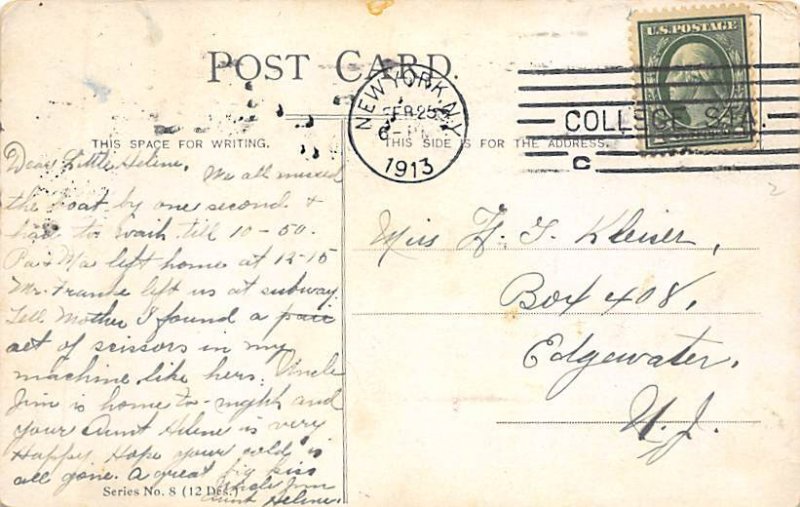 POST CARD.
NEW YORK, N.Y.
FEB 25
1913
COLLEGE STA.
C
U.S. POSTAGE
THIS SPACE FOR WRITING.
THIS SIDE IS FOR THE ADDRESS.
Dear Little Helene,
We all missed
the boat by one second &
had to wait till 10-50.
Pa & Ma left home at 12-15
Mr. Franke left us at subway.
Tell Mother I found a pair
set of scissors in my
machine like hers. Uncle
Jim is home to-night and
your Aunt Helene is very
Happy. Hope your cold is
all gone. A great big kiss
Uncle Jim
Aunt Helene.
Series No. 8 (12 Des.)
Miss H. F. Kleiser,
Box 408,
Edgewater,
N.J.
2